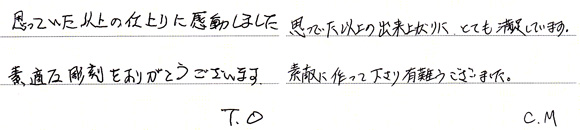 思っていた以上の仕上りに感動しました
素適な彫刻をありがとうございます
T.O
思っていた以上の出来上がりに とても満足しています。
素敵に作って下さり有難うございました。
C.M